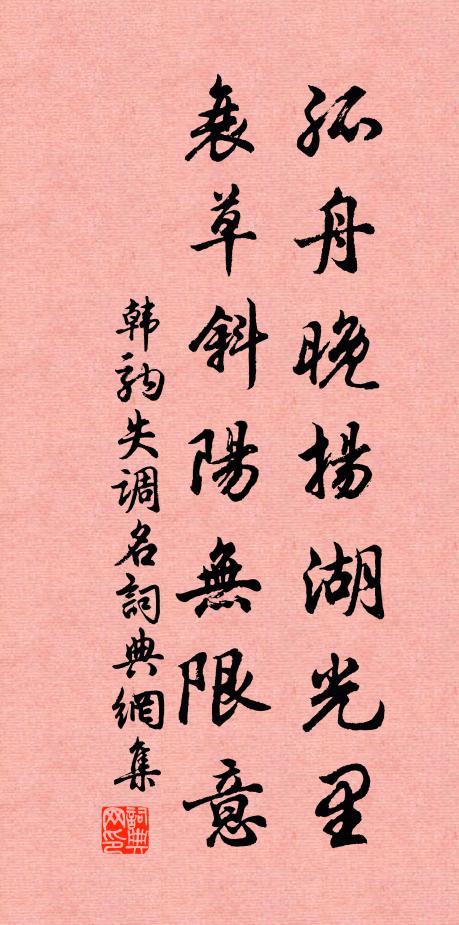 孤舟晚揚湖光里
衰草斜陽無限意
韩駒失调名詞典網集
詞典网印